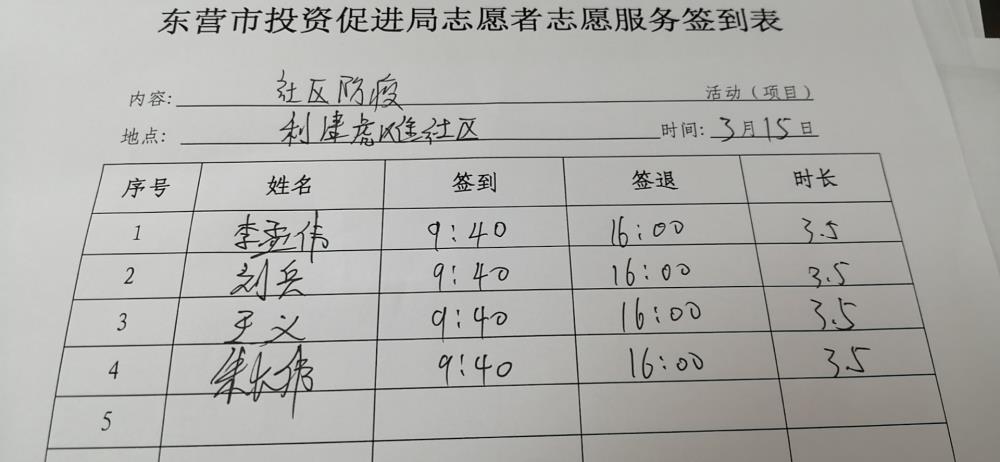 东营市投资促进局志愿者志愿服务签到表
内容: 社区防疫 活动（项目）
地点: 利津虎滩社区 时间: 3月15日
序号 姓名 签到 签退 时长
1 李孟伟 9:40 16:00 3.5
2 刘兵 9:40 16:00 3.5
3 王义 9:40 16:00 3.5
4 朱长伟 9:40 16:00 3.5
5